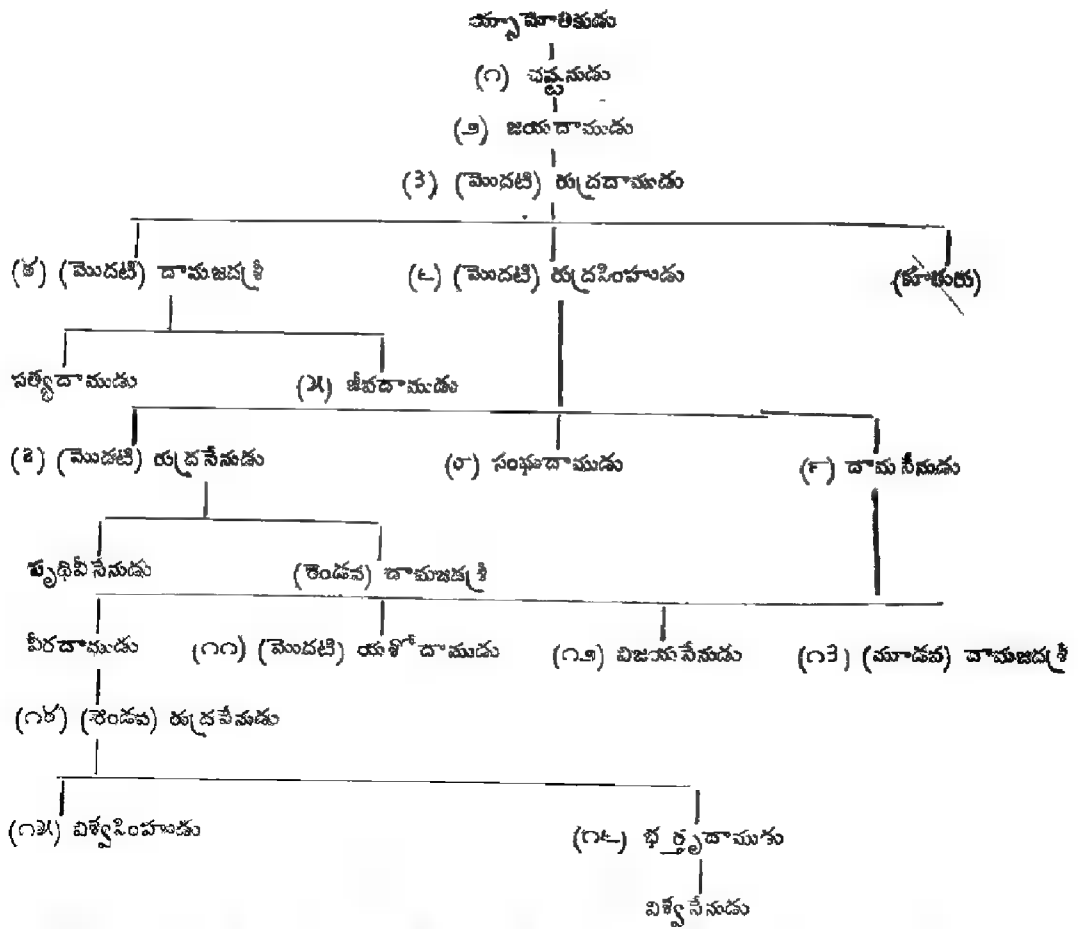 య్సామోతికుడు
(౧) చష్టనుడు
(౨) జయదాముడు
(౩) (మొదటి) రుద్రదాముడు
(౪) (మొదటి) దామజదశ్రీ (౬) (మొదటి) రుద్రసింహుడు (కూతురు)
సత్యదాముడు (౫) జీవదాముడు
(౭) (మొదటి) రుద్రసేనుడు (౮) సంఘదాముడు (౯) దామసేనుడు
పృథివీసేనుడు (రెండవ) దామజదశ్రీ
వీరదాముడు (౧౧) (మొదటి) యశోదాముడు (౧౨) విజయసేనుడు (౧౩) (మూడవ) దామజదశ్రీ
(౧౪) (రెండవ) రుద్రసేనుడు
(౧౫) విశ్వసింహుడు (౧౬) భర్తృదాముడు
విశ్వసేనుడు